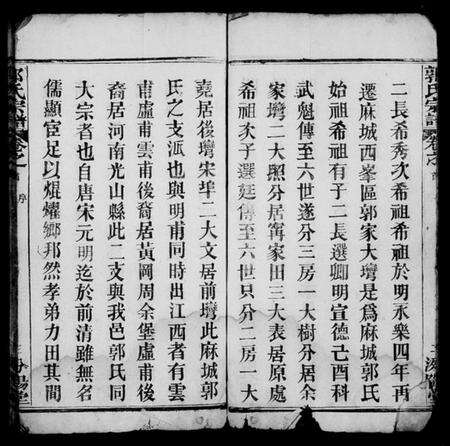 二長希秀次希祖希祖於明永樂四年丙
遷麻城西峯區郭家大塆是爲麻城郭氏
始祖希祖有子二長選卿明宣德己酉科
武魁傳至六世遂分三房一大樹分居余
家塆二大照分居甯家田三大表居原處
希祖次子選廷傳至六世只分二房一大
堯居後塆宋埠二大文居前塆此麻城郭
氏之支派也與明甫同時出江西者有雲
甫虛甫雲甫後裔居黃岡周余堡虛甫後
裔居河南光山縣此二支與我邑郭氏同
大宗者也自唐宋元明迄於前清雖無名
儒顯臣足以焜耀鄉邦然孝弟力田其間
郭氏宗譜
卷之
序